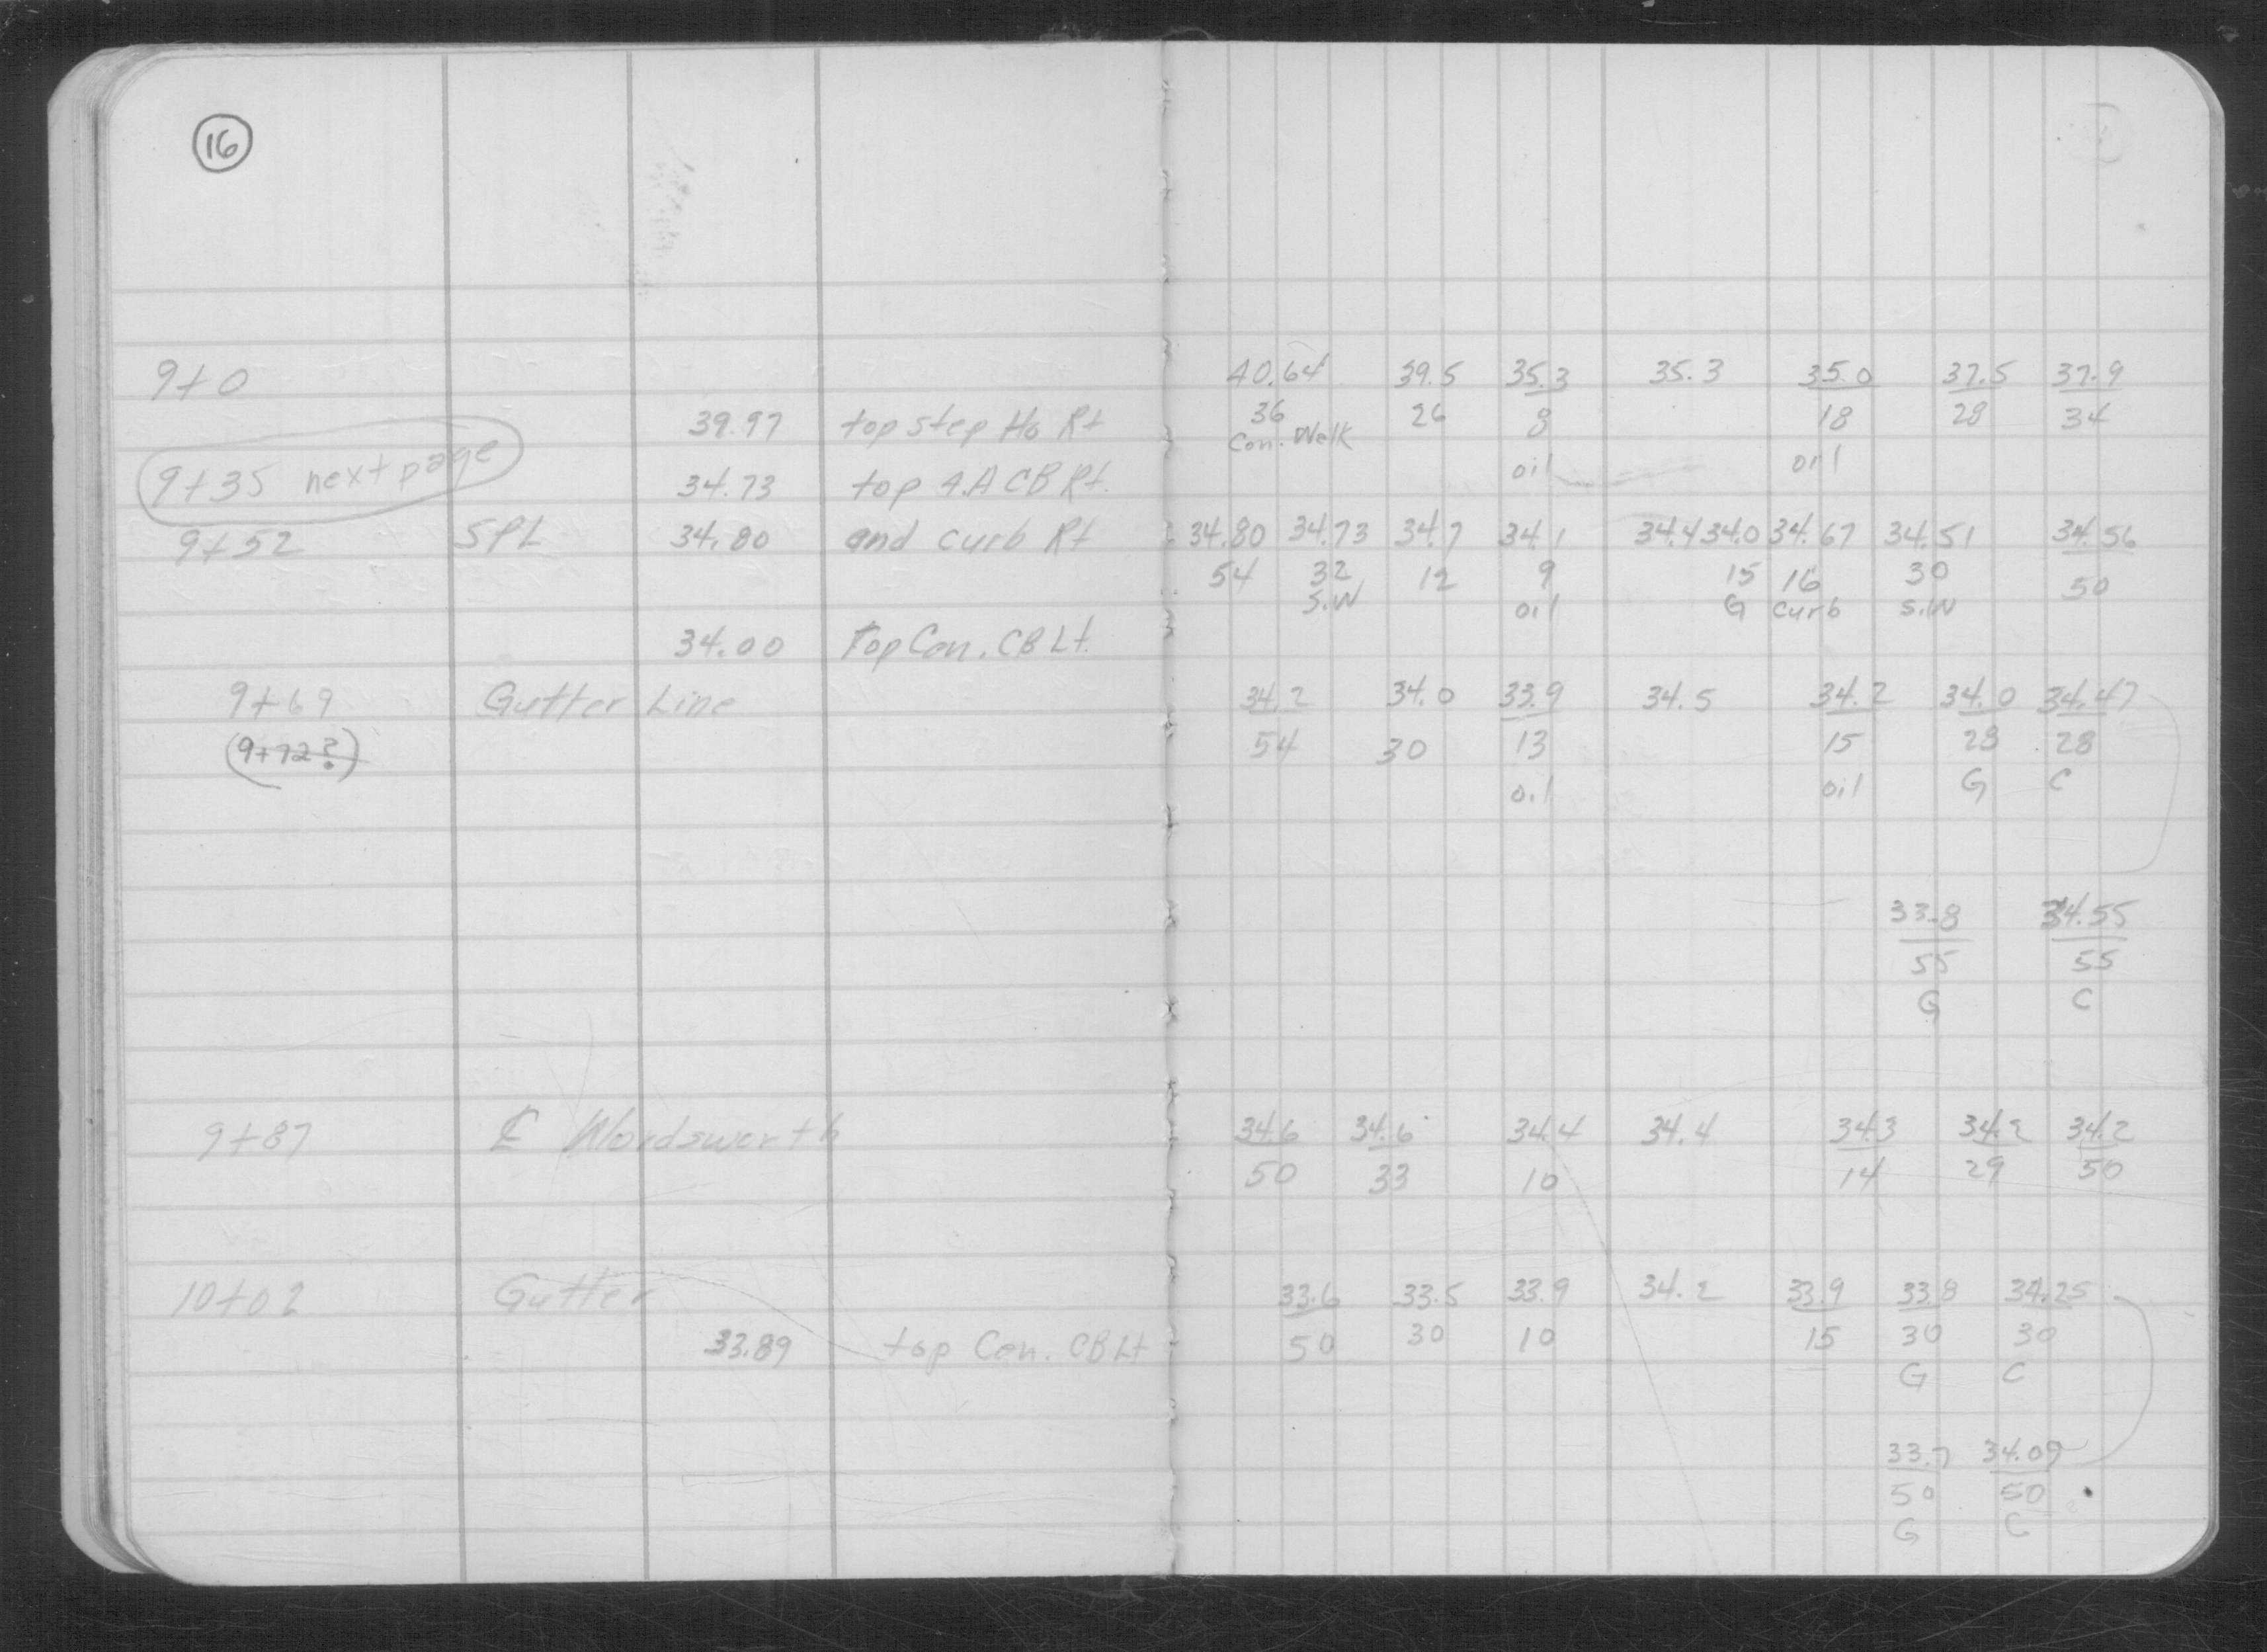 16
9+0 40.64 39.5 35.3 35.3 35.0 37.5 37.9
39.97 top step Ho Rt 36 26 8 18 28 34
Con. Walk oil oil
9+35 next page 34.73 top A.A CB Rt.
9+52 SPL 34.80 and curb Rt 34.80 34.73 34.7 34.1 34.4 34.0 34.67 34.51 34.56
54 32 12 9 15 16 30 50
S.W oil G Curb S.W
34.00 Top Con. CB Lt.
9+69 Gutter Line 34.2 34.0 33.9 34.5 34.2 34.0 34.47
(9+72?) 54 30 13 15 28 28
oil oil G C
33.8 34.55
55 55
G C
9+87 ℄ Wordsworth 34.6 34.6 34.4 34.4 34.3 34.2 34.2
50 33 10 14 29 50
10+02 Gutter 33.6 33.5 33.9 34.2 33.9 33.8 34.25
33.89 top Con. CB Lt 50 30 10 15 30 30
G C
33.7 34.09
50 50
G C